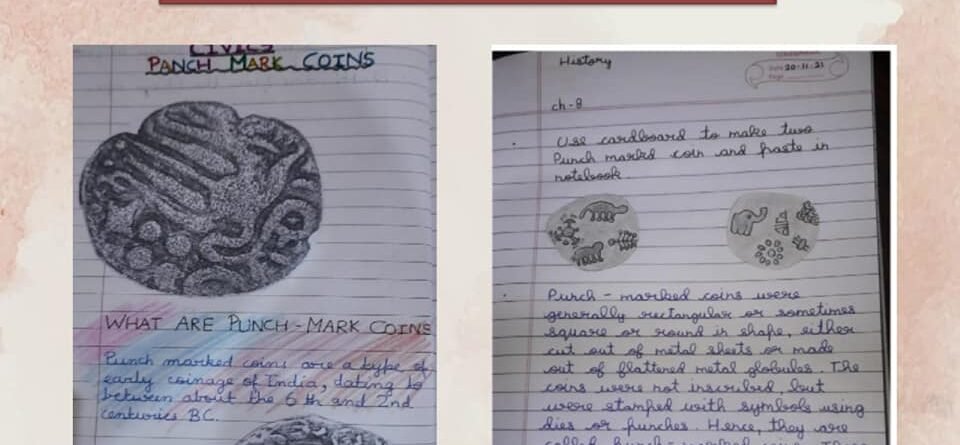 CIVICS
PANCH MARK COINS
WHAT ARE PUNCH-MARK COINS
Punch marked coins are a type of
early coinage of India, dating to
between about the 6 th and 2nd
centuries BC.
History
Date 20-11-21
Page
ch-8
Use cardboard to make two
Punch marked coin and paste in
notebook.
Punch - marked coins were
generally rectangular or sometimes
square or round in shape, either
cut out of metal sheets or made
out of flattened metal globules. The
coins were not inscribed but
were stamped with symbols using
dies or punches. Hence, they are
called punch-marked coins. These